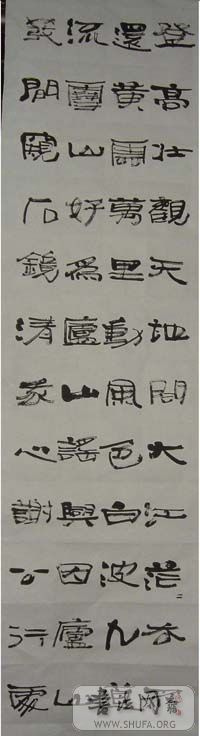 登高壯觀天地間大江茫々去
還黃雲萬里動風色白波九
流雪山好為廬山謠興因廬山
發間窺石鏡清我心謝公行處
書法网
WWW.SHUFA.ORG